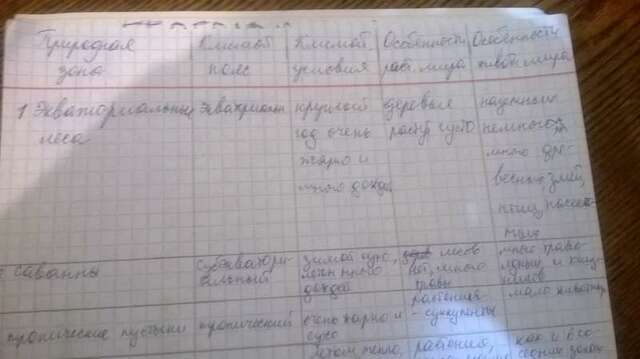 Природная зона
Климат. пояс
Климат. условия
Особенности раст. мира
Особенности живот. мира
1 Экваториальные леса
Экваториал
круглый год очень жарко и много дождей
деревья растут густо
наземных немного, много древесных, змей, птиц, насекомых
саванны
субэкваториальный
зимой сухо, много дождей
лесов нет, много травы
много травоядных и хищников
тропические пустыни
тропический
очень жарко и сухо
растения - суккуленты
мало животн
летом тепло,
растения,
как и во